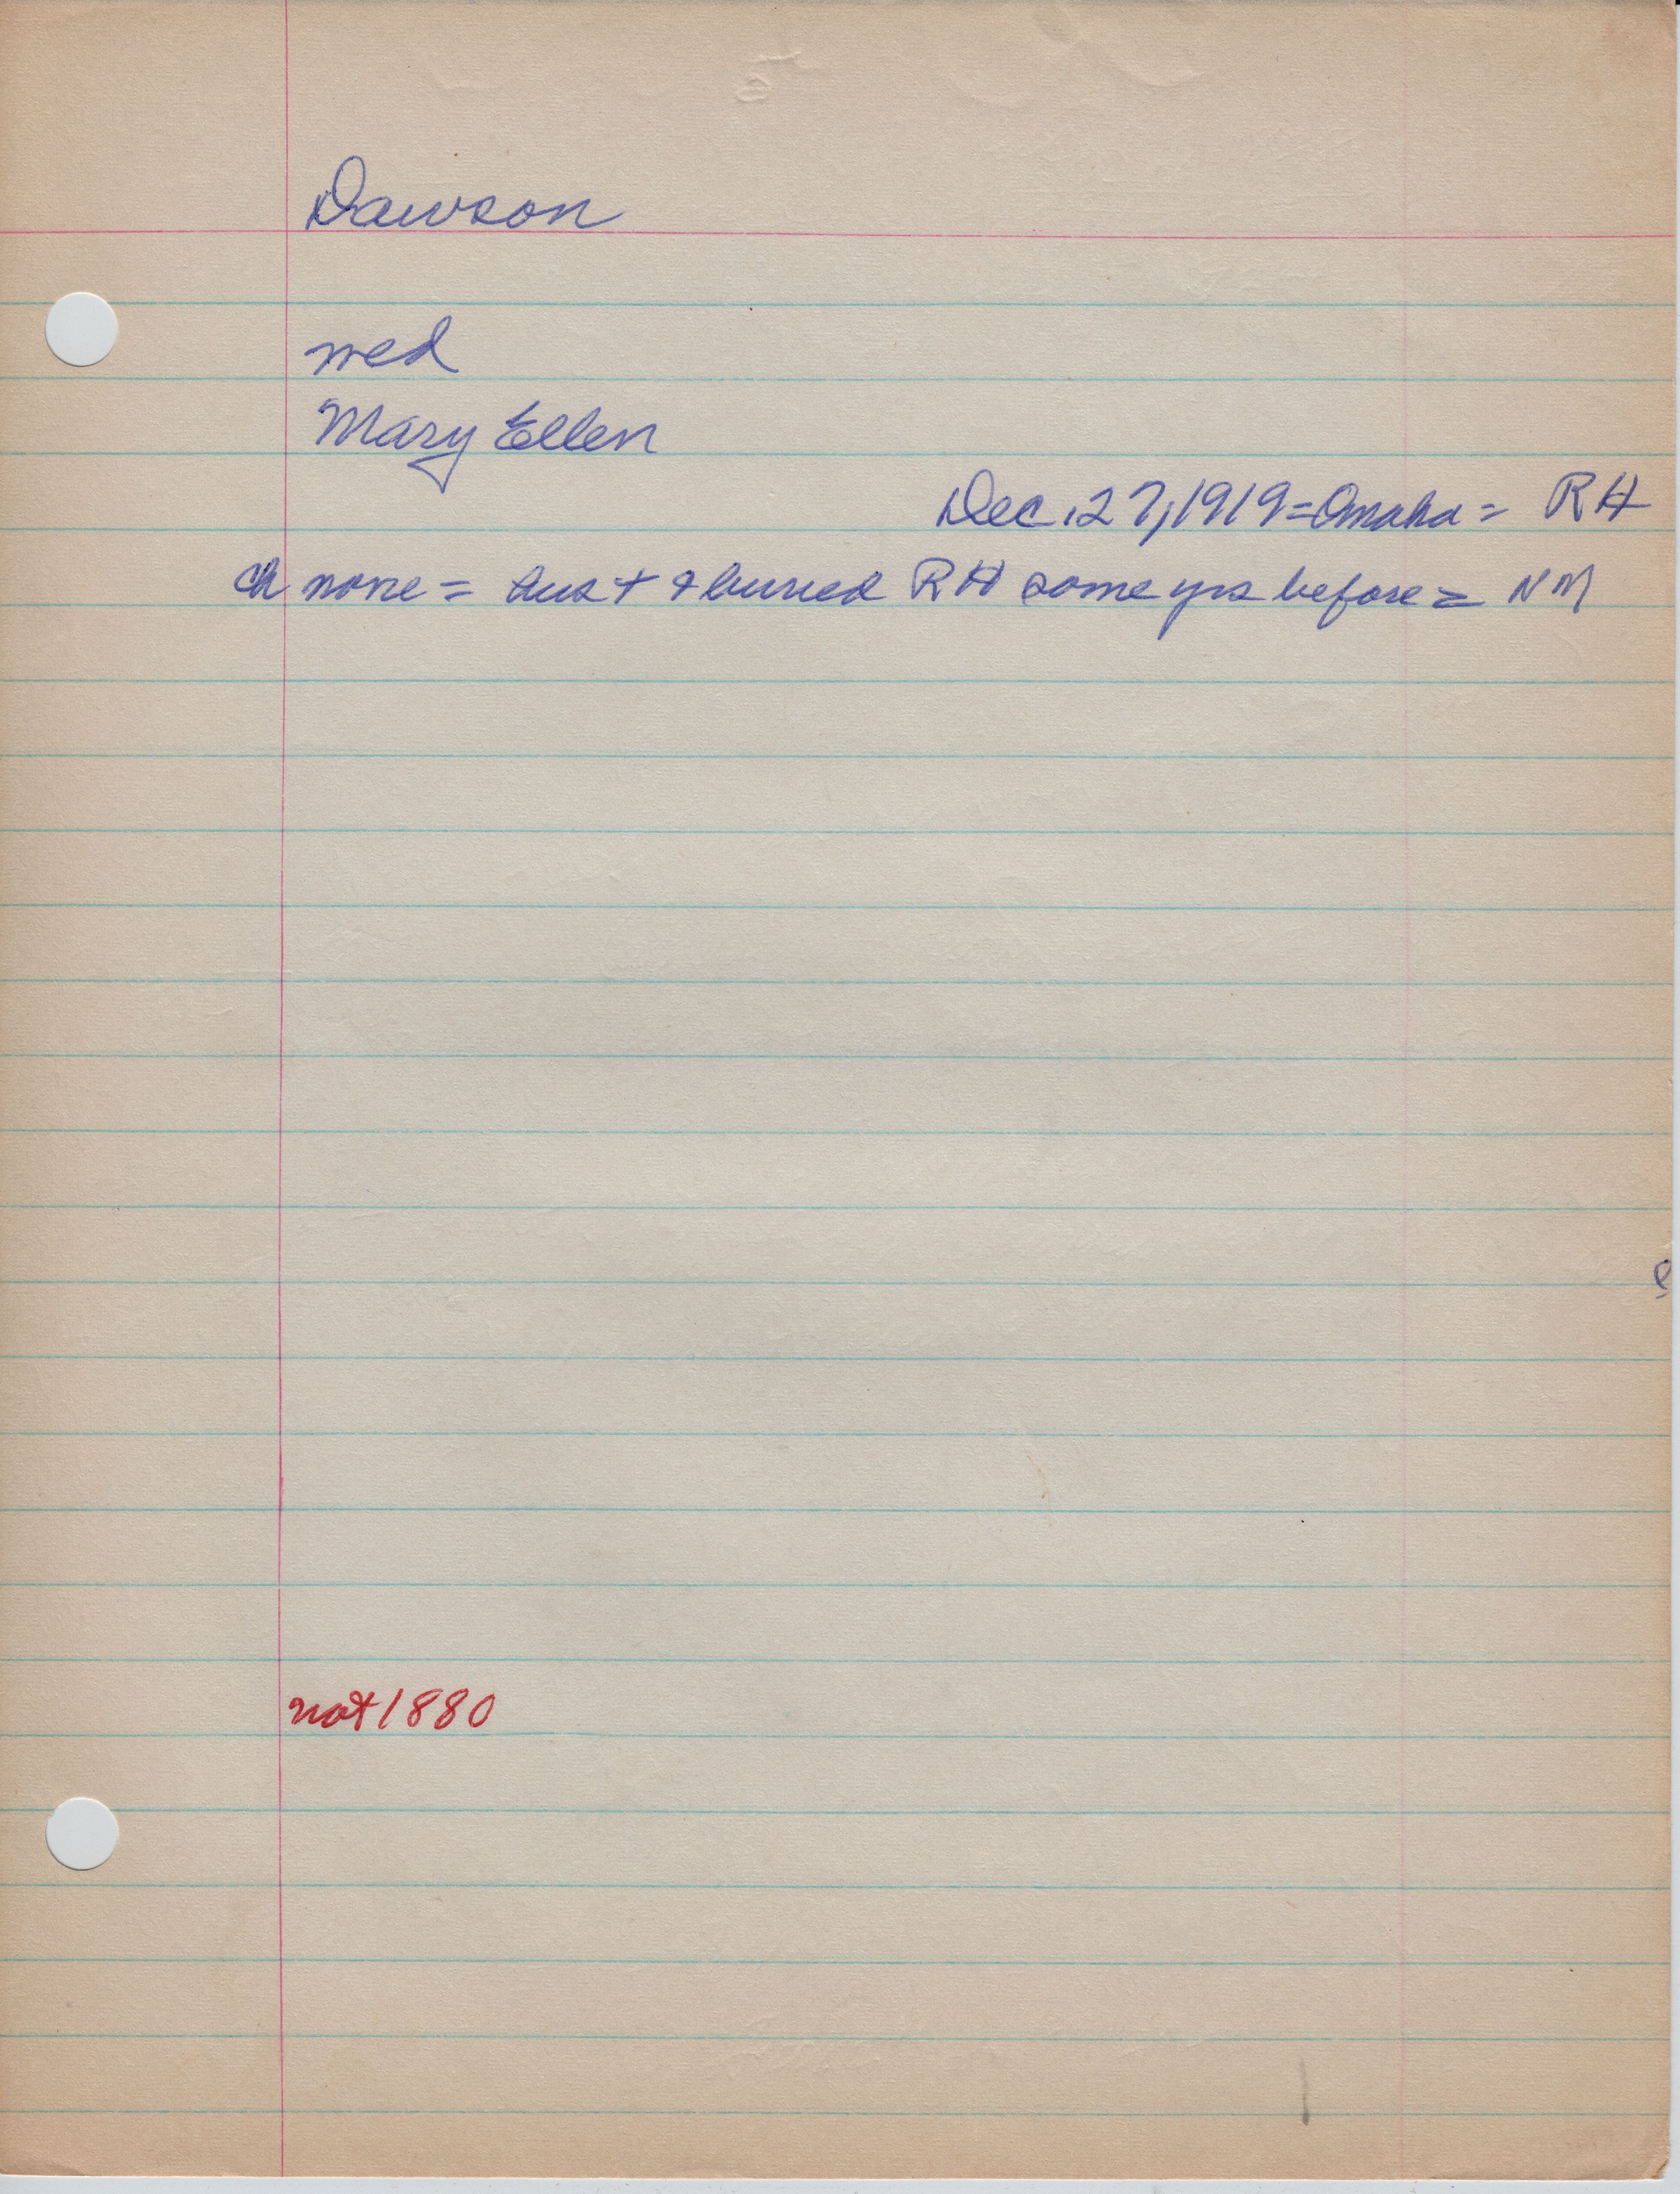 Dawson
med
Mary Ellen
Dec. 27, 1919 = Omaha = RH
ch none = & buried RH some yrs before = NM
not 1880